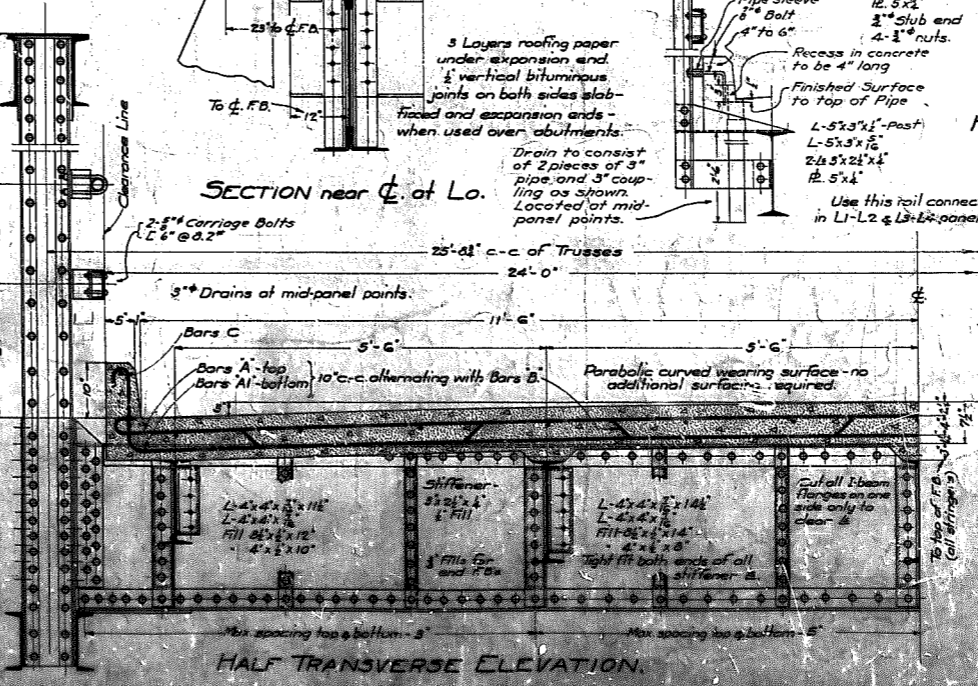 23" to ℄ F.B.
To ℄ F.B.
12"
3 Layers roofing paper
under expansion end.
½" vertical bituminous
joints on both sides slab-
fixed and expansion ends-
when used over abutments.
SECTION near ℄ at Lo.
Pipe Sleeve
Bolt
4" to 6"
5"x¼"
¾"ᶲ Stub end
4-¾"ᶲ nuts.
Recess in concrete
to be 4" long
Finished Surface
to top of Pipe
L-5"x3"x½"-Post
L-5"x3"x5/16"
2-Ls 3"x2½"x¼"
℔. 5"x¼"
Drain to consist
of 2 pieces of 3"
pipe, and 3" coup-
ling as shown.
Located at mid-
panel points.
2'-6"
Use this rail connec
in L1-L2 & L3-L4 panel
Clearance Line
2-⅝"ᶲ Carriage Bolts
[ 6" @ 8.2#
25'-8¾" c.-c. of Trusses
24'-0"
3"ᶲ Drains at mid-panel points.
℄
5"
1"
11'-6"
Bars C
5'-6"
5'-6"
Bars "A"-top
Bars A1-bottom
10" c.-c. alternating with Bars "B"
Parabolic curved wearing surface-no
additional surfacing required.
10"
3"
7½"
Stiffener-
3"x2½"x¼"
¼" Fill
L-4"x4"x7/16"x11½"
L-4"x4"x7/16"
Fill 8½"x½"x12"
" 4"x½"x10"
L-4"x4"x7/16"x14½"
L-4"x4"x7/16"
Fill-8½"x½"x14"
" 4"x½"x8"
Tight fit both ends of all
stiffener Ls.
½" Fills for
end F.B.s
Cut all I-beam
flanges on one
side only to
clear Ls
To top of F.B.
(all stringers)
Max. spacing top & bottom-3"
Max. spacing top & bottom-5"
HALF TRANSVERSE ELEVATION.